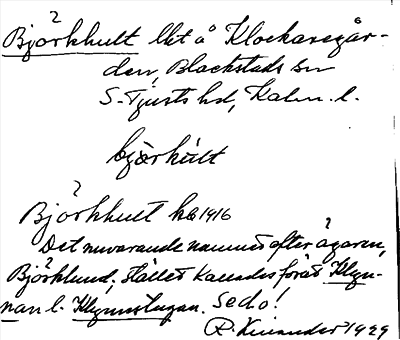 ?
Björkhult lht å Klockaregår-
den, Blackstads sn
S. Tjusts hd, Kalm. l.
björkhult
?
Björkhult hb 1916
Det nuvarande namnet efter ägaren,
Björklund. Stället kallades förut Klyn-
nan l. Klynnstugan. Se do!
R. Kinander 1929